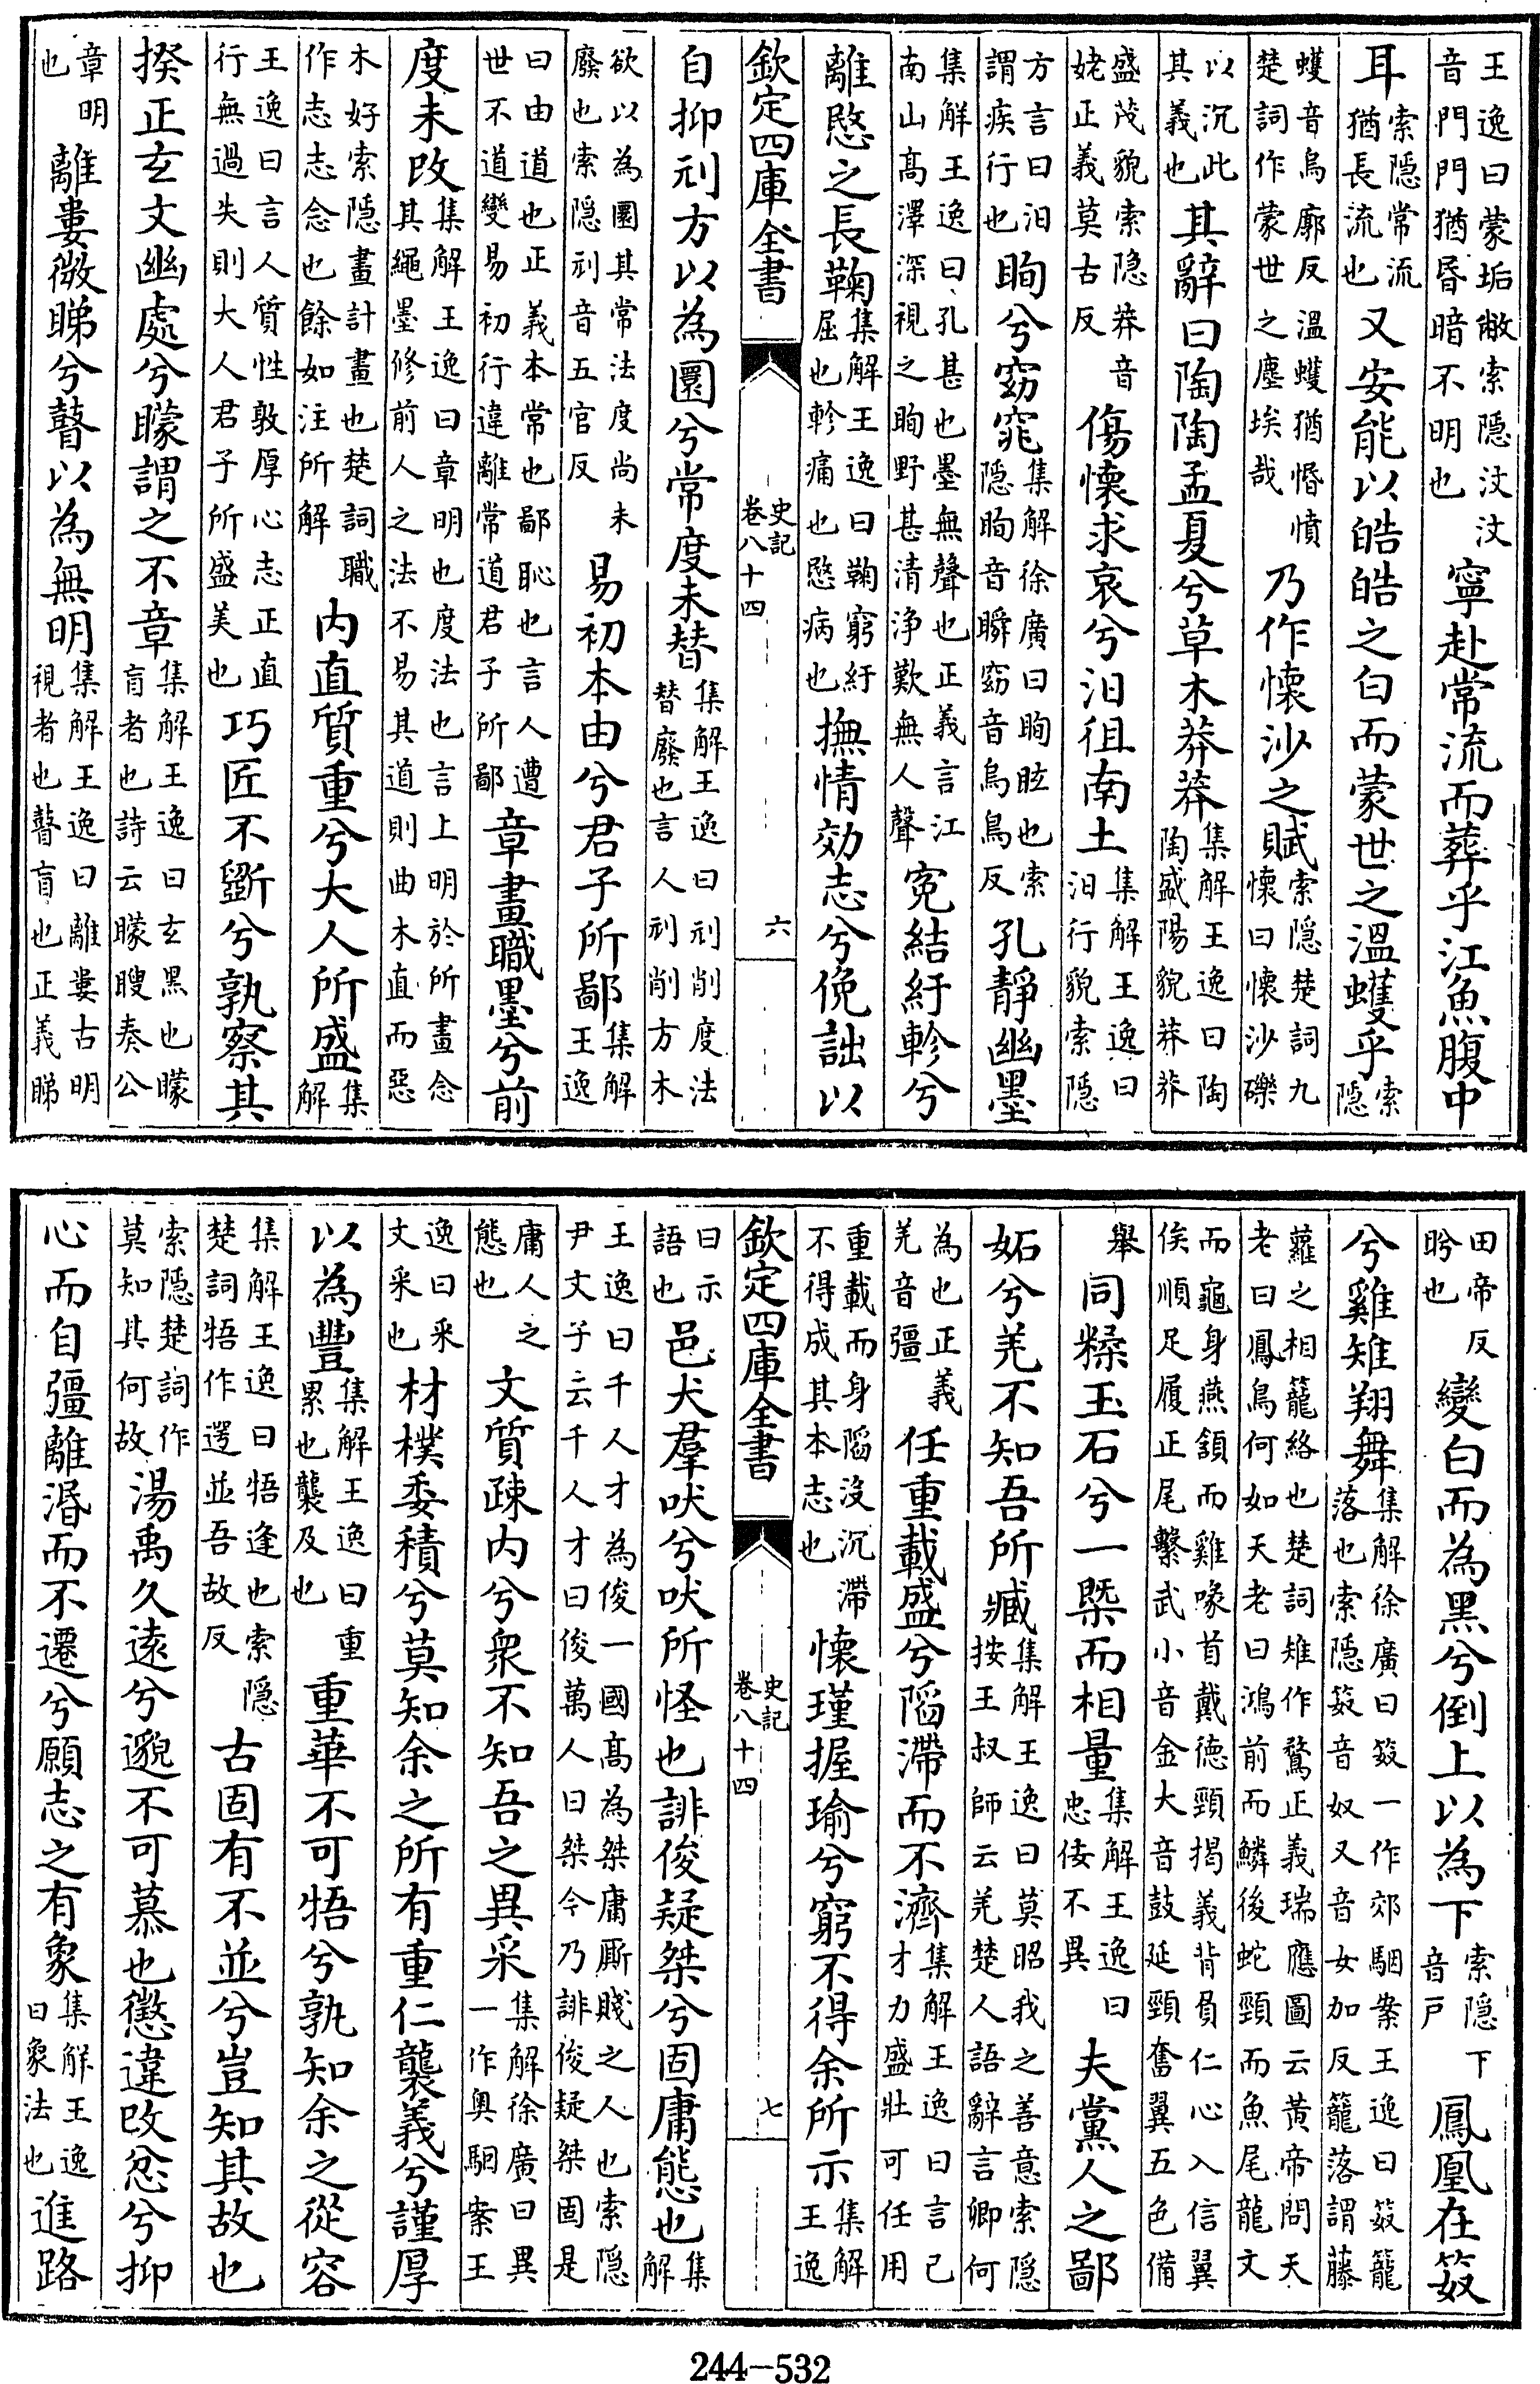 王逸曰蒙垢敝索隱汶汶音門門猶昏暗不明也寧赴常流而葬乎江魚腹中
耳索隱常流猶長流也又安能以皓皓之白而蒙世之溫蠖乎索隱
蠖音烏廓反溫蠖猶惛憤楚詞作蒙世之塵埃哉乃作懷沙之賦索隱楚詞九懷曰懷沙礫
以沉此其義也其辭曰陶陶孟夏兮草木莽莽集解王逸曰陶陶盛陽貌莽莽
盛茂貌索隱莽音姥正義莫古反傷懷求哀兮汩徂南土集解王逸曰汩行貌索隱
方言曰汩謂疾行也眴兮窈窕集解徐廣曰眴眩也索隱眴音瞬窈音烏鳥反孔靜幽墨
集解王逸曰孔甚也墨無聲也正義言江南山高澤深視之眴野甚清淨歎無人聲寃結紆軫兮
離愍之長鞠集解王逸曰鞠窮紆屈也軫痛也愍病也撫情効志兮俛詘以
欽定四庫全書 史記卷八十四 六
自抑刓方以為圜兮常度未替集解王逸曰刓削度法替廢也言人刓削方木
欲以為圜其常法度尚未廢也索隱刓音五官反易初本由兮君子所鄙集解王逸
曰由道也正義本常也鄙恥也言人遭世不道變易初行違離常道君子所鄙章畫職墨兮前
度未改集解王逸曰章明也度法也言上明於所畫念其繩墨修前人之法不易其道則曲木直而惡
木好索隱畫計畫也楚詞職作志志念也餘如注所解内直質重兮大人所盛集解
王逸曰言人質性敦厚心志正直行無過失則大人君子所盛美也巧匠不斵兮孰察其
揆正玄文幽處兮矇謂之不章集解王逸曰玄黑也矇盲者也詩云矇瞍奏公
章明也離婁微睇兮瞽以為無明集解王逸曰離婁古明視者也瞽盲也正義睇
田帝反眄也變白而為黑兮倒上以為下索隱下音戸鳳凰在笯
兮雞雉翔舞集解徐廣曰笯一作郊駰案王逸曰笯籠落也索隱笯音奴又音女加反籠落謂藤
蘿之相籠絡也楚詞雉作鶩正義瑞應圖云黃帝問天老曰鳳鳥何如天老曰鴻前而鱗後蛇頸而魚尾龍文
而龜身燕頷而雞喙首戴徳頸揭義背負仁心入信翼俟順足履正尾繫武小音金大音鼓延頸奮翼五色備
舉同糅玉石兮一槩而相量集解王逸曰忠佞不異夫黨人之鄙
妬兮羌不知吾所臧集解王逸曰莫昭我之善意索隱按王叔師云羌楚人語辭言卿何
為也正義羌音彊任重載盛兮陷滯而不濟集解王逸曰言己才力盛壯可任用
重載而身陷沒沉滯不得成其本志也懷瑾握瑜兮窮不得余所示集解王逸
欽定四庫全書 史記卷八十四 七
曰示語也邑犬羣吠兮吠所怪也誹俊疑桀兮固庸態也集解
王逸曰千人才為俊一國高為桀庸厮賤之人也索隱尹文子云千人才曰俊萬人曰桀今乃誹俊疑桀固是
庸人之態也文質疎内兮衆不知吾之異采集解徐廣曰異一作奥駰案王
逸曰采文采也材樸委積兮莫知余之所有重仁襲義兮謹厚
以為豐集解王逸曰重累也襲及也重華不可牾兮孰知余之從容
集解王逸曰牾逢也索隱楚詞牾作遻並吾故反古固有不並兮豈知其故也
索隱楚詞作莫知其何故湯禹久遠兮邈不可慕也懲違改忿兮抑
心而自彊離湣而不遷兮願志之有象集解王逸曰象法也進路
244-532